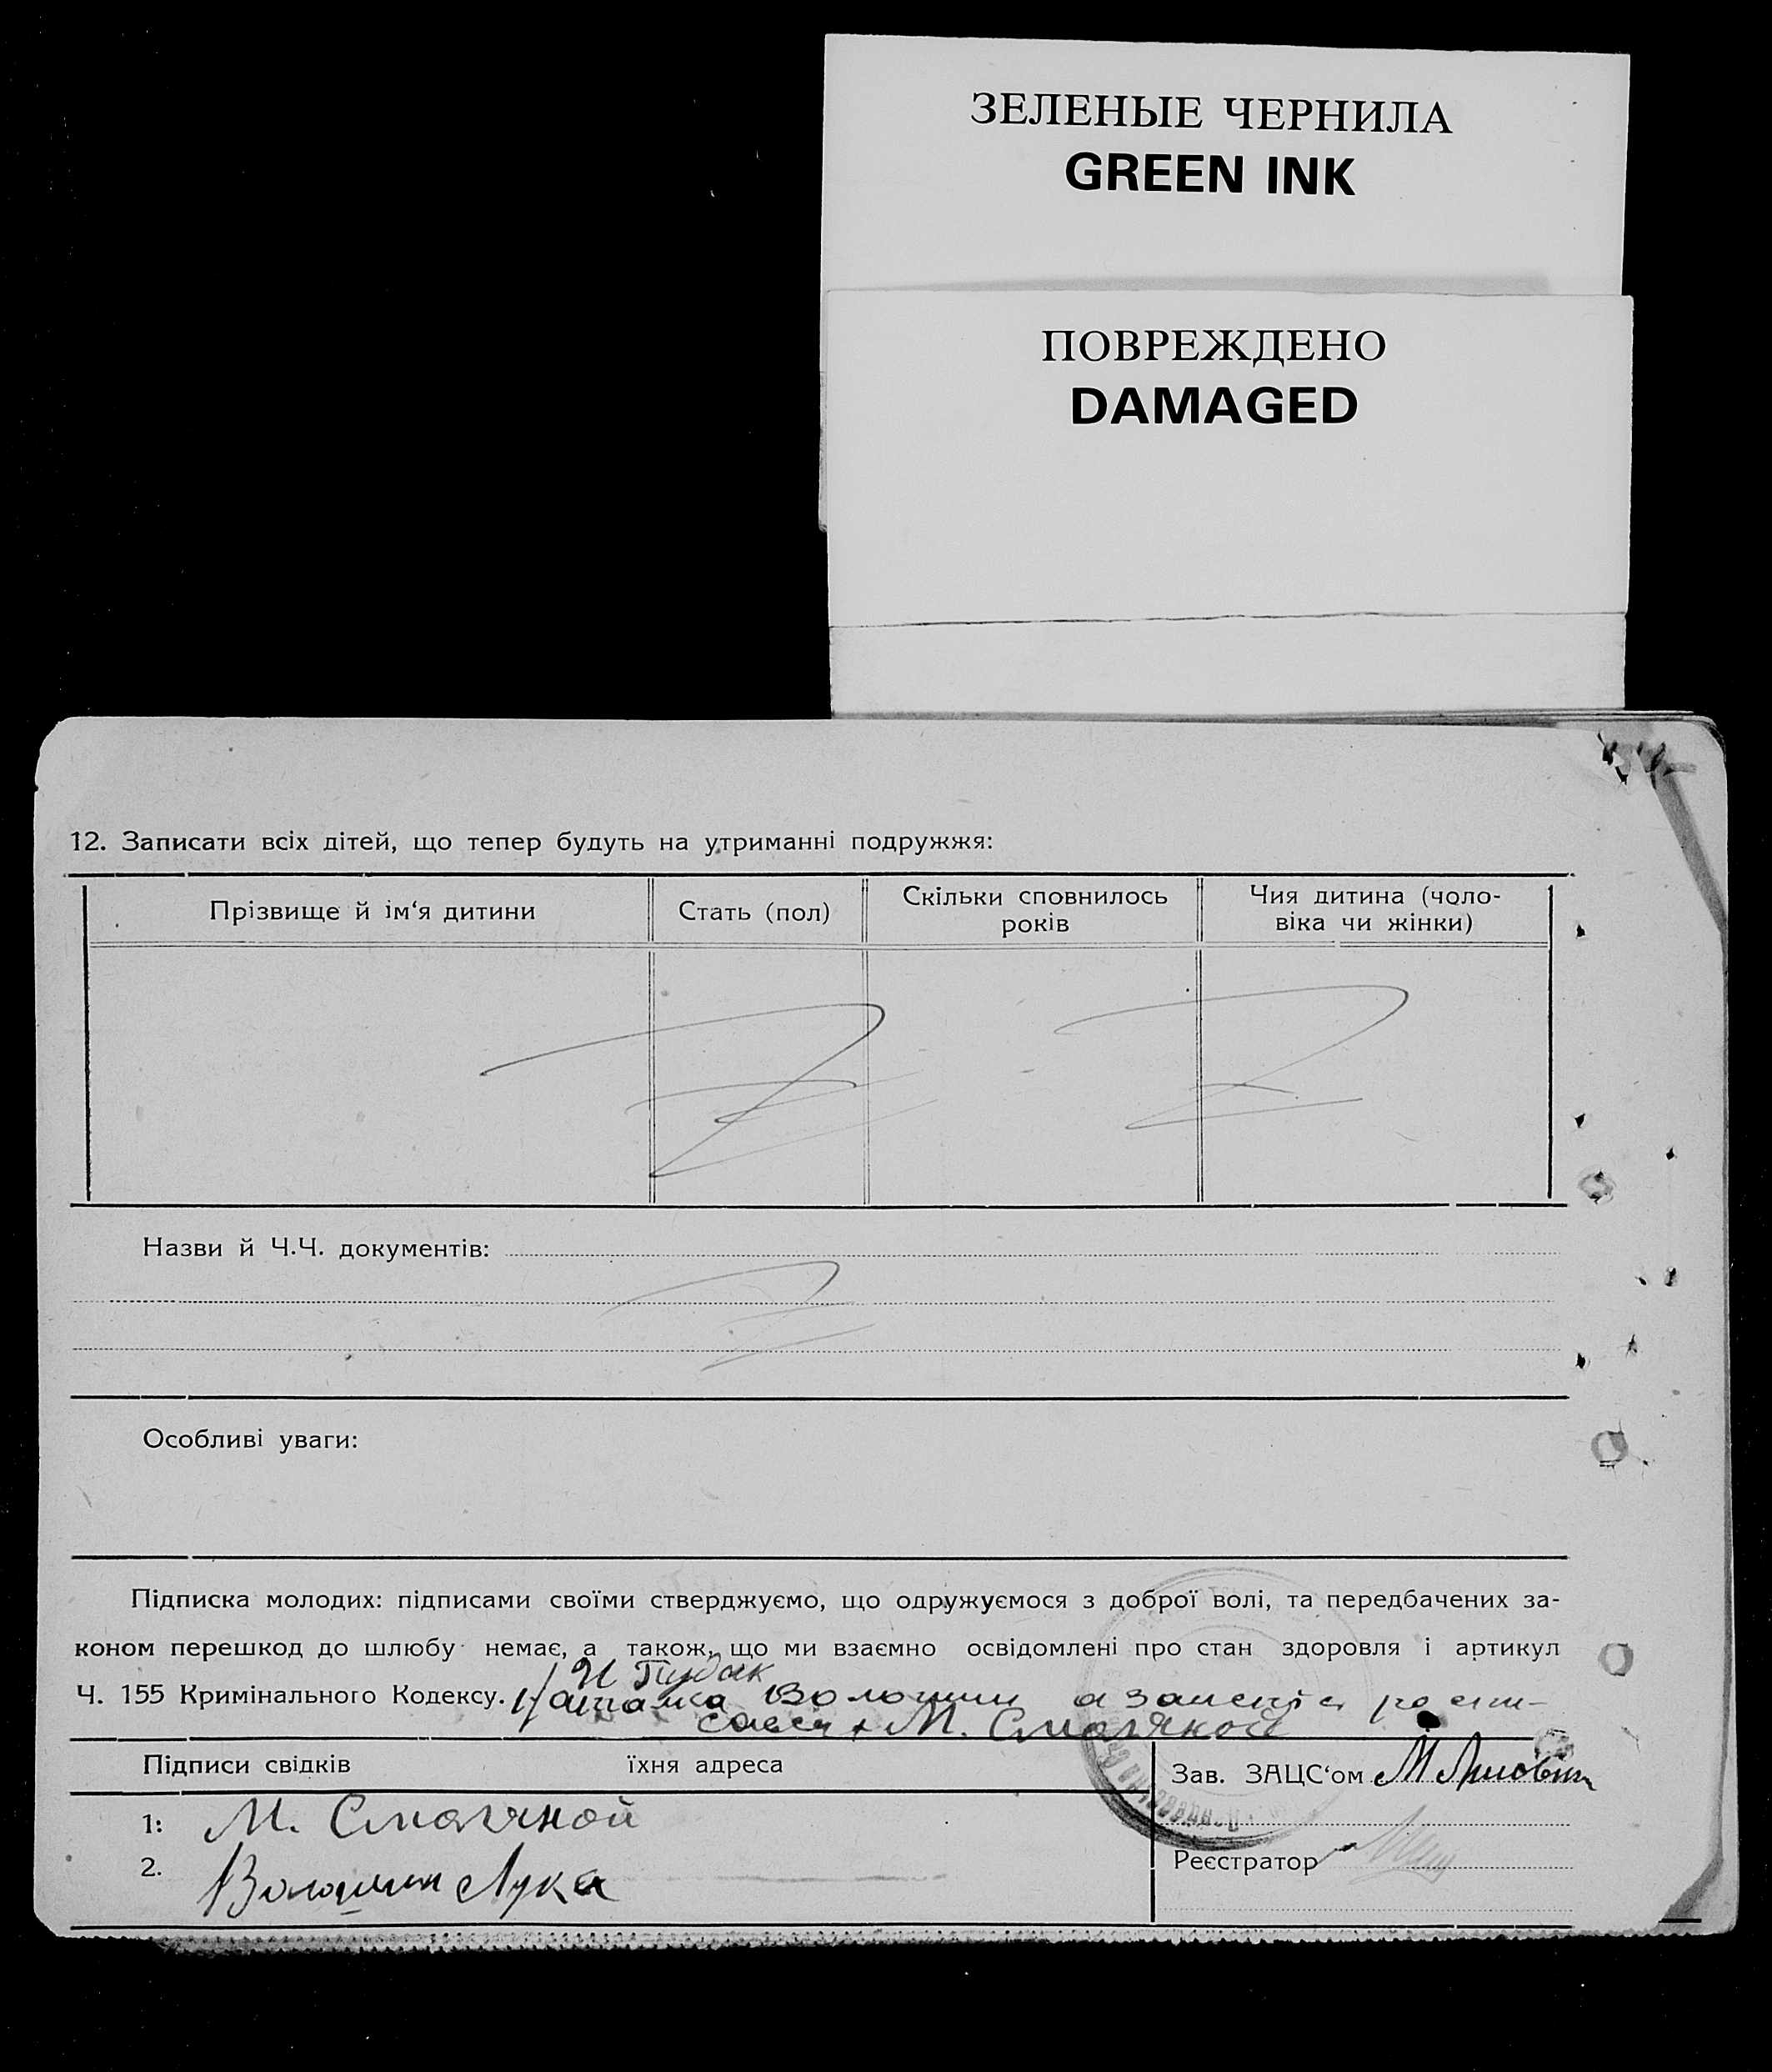 ЗЕЛЕНЫЕ ЧЕРНИЛА
GREEN INK
ПОВРЕЖДЕНО
DAMAGED
12. Записати всіх дітей, що тепер будуть на утриманні подружжя:
Прізвище й ім‘я дитини
Стать (пол)
Скільки сповнилось
років
Чия дитина (чоло-
віка чи жінки)
Назви й Ч.Ч. документів:
Особливі уваги:
Підписка молодих: підписами своїми стверджуємо, що одружуємося з доброї волі, та передбачених за-
коном перешкод до шлюбу немає, а також, що ми взаємно освідомлені про стан здоровля і артикул
Ч. 155 Кримінального Кодексу.
Волошин
М.
Підписи свідків
їхня адреса
Зав. ЗАЦС‘ом М
1: М. Смоляной
2. Волошин Лука
Реєстратор